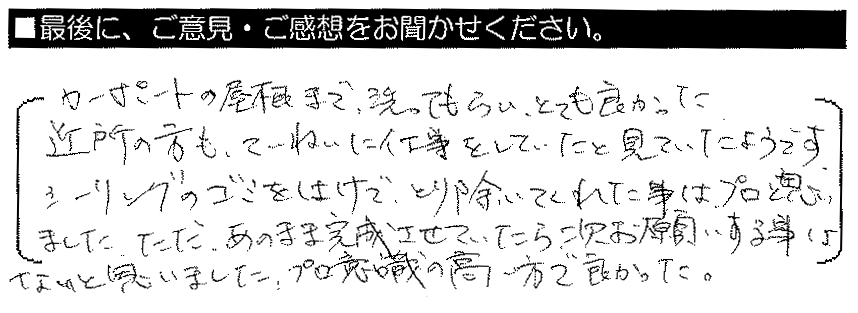 ■最後に、ご意見・ご感想をお聞かせください。
カーポートの屋根まで、洗ってもらい、とても良かった
近所の方も、てーねいに仕事をしていたと見ていたようです
シーリングのゴミをはけで、とり除いてくれた事はプロと思い
ました ただ、あのまま完成させていたら二次お願いする事は
ないと思いました、プロ意識の高い方で良かった。